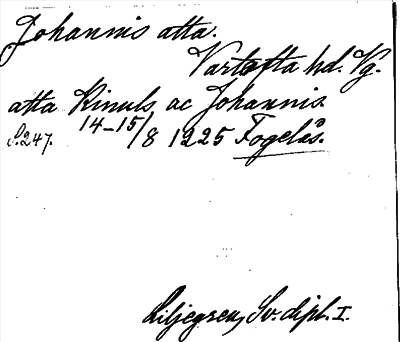 Johannis atta.
Vartofta hd. Vg.
atta Kinuls ac Johannis
S. 247. 14-15/8 1225 Fogelås.
Liljegren, Sv. dipl. I.